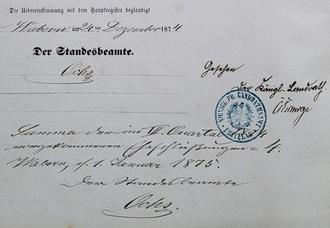 Die Uebereinstimmung mit dem Hauptregister beglaubigt
Wabern, 24. Dezember 1874
Der Standesbeamte.
Ochs.
Gesehen
der Königl. Landrath
Summa der im IV. Quartal
vorgekommenen Eheschließungen = 4.
Wabern, d. 1. Januar 1875.
Der Standesbeamte
Ochs.